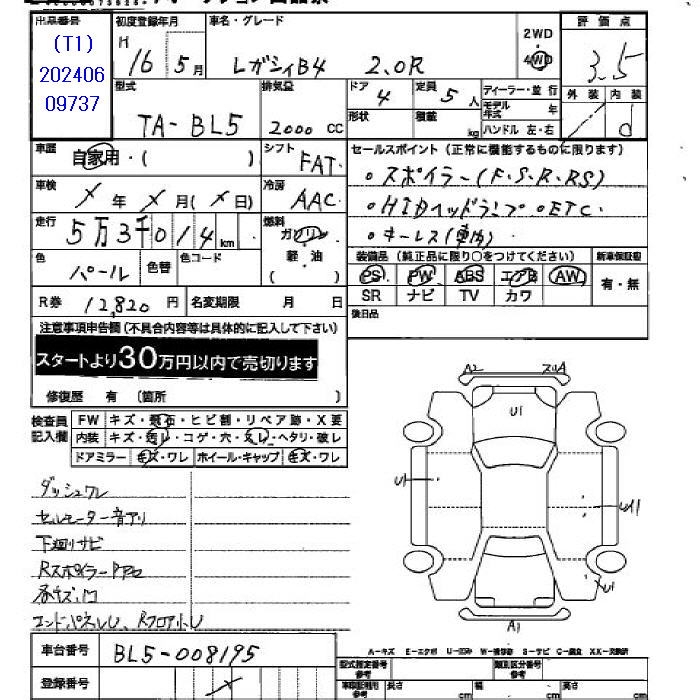 出品番号
(T1)
202406
09737
初度登録年月
H 16 年 5 月
車名・グレード
レガシィB4 2.0R
2WD
4WD
評価点
3.5
型式
TA-BL5
排気量
2000 CC
ドア
4
定員
5 人
形状
積載
kg
ディーラー・並行
モデル年式
年
ハンドル 左・右
外装
内装
d
車歴
自家用・( )
シフト
FAT
セールスポイント (正常に機能するものに限ります)
。スポイラー(F.S.R.RS)
。HIDヘッドランプ 。ETC.
。キーレス(車内)
車検
X 年 X 月 (X 日)
冷房
AAC
走行
5万3千014 km
燃料
ガソリン
軽・油
( )
色
パール
色替
色コード
装備品 (純正品に限り〇をつけてください)
新車保証書
PS PW ABS エアB AW
SR ナビ TV カワ
有・無
R券 12,820 円
名変期限 月 日
後日品
注意事項申告欄(不具合内容等は具体的に記入して下さい)
スタートより30万円以内で売切ります
修復歴 有 (箇所 )
検査員記入欄
FW キズ・飛石・ヒビ割・リペア跡・X要
内装 キズ・汚レ・コゲ・穴・スレ・ヘタリ・破レ
ドアミラー キズ・ワレ ホイール・キャップ キズ・ワレ
A2
スリA
U1
U1
U1
A1
ダッシュワレ
セルモーター音アリ
下廻リサビ
エンドパネルU、RフロアナトU
車台番号
BL5-008195
登録番号
A-キズ E-エクボ U-凹み W-補修跡 S-サビ C-腐食 XX-交換済
型式指定番号
類別区分番号
長さ cm 幅 cm 高さ cm